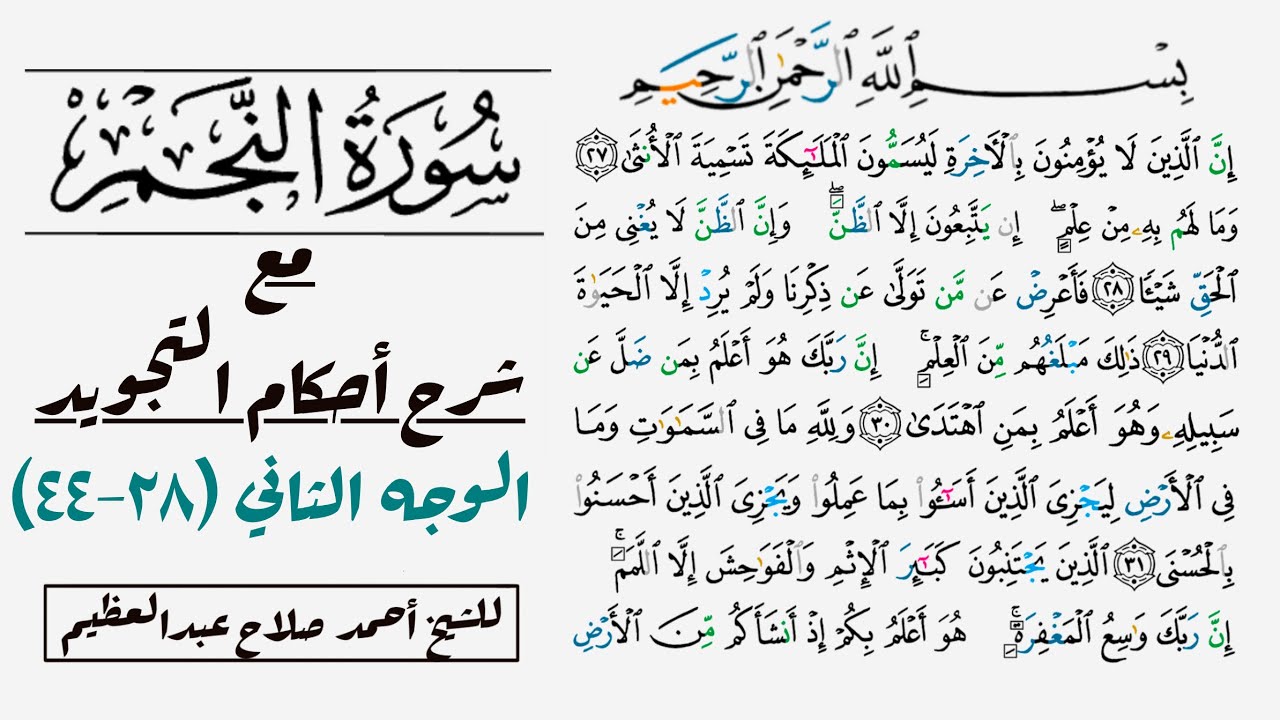 سُورَةُ النَّجْمِ
مع
شرح أحكام التجويد
الوجه الثاني (٢٨-٤٤)
للشيخ أحمد صلاح عبدالعظيم
بِسْمِ ٱللَّهِ ٱلرَّحْمَٰنِ ٱلرَّحِيمِ
إِنَّ ٱلَّذِينَ لَا يُؤْمِنُونَ بِٱلْءَاخِرَةِ لَيُسَمُّونَ ٱلْمَلَٰٓئِكَةَ تَسْمِيَةَ ٱلْأُنثَىٰ ٢٧
وَمَا لَهُم بِهِۦ مِنْ عِلْمٍۖ إِن يَتَّبِعُونَ إِلَّا ٱلظَّنَّۖ وَإِنَّ ٱلظَّنَّ لَا يُغْنِى مِنَ
ٱلْحَقِّ شَيْـًٔا ٢٨ فَأَعْرِضْ عَن مَّن تَوَلَّىٰ عَن ذِكْرِنَا وَلَمْ يُرِدْ إِلَّا ٱلْحَيَوٰةَ
ٱلدُّنْيَا ٢٩ ذَٰلِكَ مَبْلَغُهُم مِّنَ ٱلْعِلْمِۚ إِنَّ رَبَّكَ هُوَ أَعْلَمُ بِمَن ضَلَّ عَن
سَبِيلِهِۦ وَهُوَ أَعْلَمُ بِمَنِ ٱهْتَدَىٰ ٣٠ وَلِلَّهِ مَا فِى ٱلسَّمَٰوَٰتِ وَمَا
فِى ٱلْأَرْضِ لِيَجْزِىَ ٱلَّذِينَ أَسَٰٓـُٔوا۟ بِمَا عَمِلُوا۟ وَيَجْزِىَ ٱلَّذِينَ أَحْسَنُوا۟
بِٱلْحُسْنَى ٣١ ٱلَّذِينَ يَجْتَنِبُونَ كَبَٰٓئِرَ ٱلْإِثْمِ وَٱلْفَوَٰحِشَ إِلَّا ٱللَّمَمَۚ
إِنَّ رَبَّكَ وَٰسِعُ ٱلْمَغْفِرَةِۚ هُوَ أَعْلَمُ بِكُمْ إِذْ أَنشَأَكُم مِّنَ ٱلْأَرْضِ